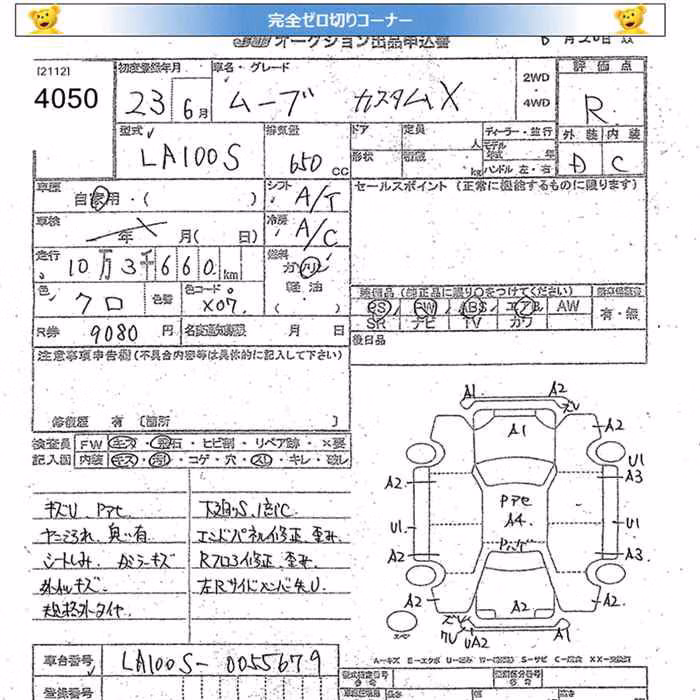 完全ゼロ切りコーナー
オークション出品申込書
[2112]
4050
初度登録年月
23 6月
車名・グレード
ムーブ カスタムX
2WD
・
4WD
評価点
R
外装 内装
D C
型式
LA100S
排気量
650cc
ドア 定員 人
形状 積載 kg
ディーラー・並行
モデル年式 年
ハンドル 左・右
車歴
自家用・( )
シフト
A/T
セールスポイント(正常に機能するものに限ります)
車検
年 月( 日)
冷房
A/C
走行
10万3千660km
燃料
ガソリン
軽油
色
クロ
色替
色カラーコード
X07
装備品(純正品に限り○をつけてください)
PS PW ABS エアB AW
SR ナビ TV カワ
有・無
後日品
R券 9080円
名義変更期限 月 日
注意事項申告欄(不具合内容等は具体的に記入して下さい)
修復歴 有 [箇所 ]
検査員 FW キズ・飛石・ヒビ割・リペア跡・×要
記入図 内装 キズ・汚れ・コゲ・穴・スレ・キレ・破レ
キズU Pアセ
ヤニよごれ 臭い有
シートしみ ガラーキズ
外ルーキズ
規格外タイヤ
下廻りS、
エンドパネル修正、歪み
Rフロア修正、歪み
左Rサイドメンバー先U
A1 A2
A1
A2
U1
A3
A2
U1
U1
A2
A3
Pアセ
A4
A2
A2
A2
UA2
A1
スペア
A−キズ E−エクボ U−凹み W−(補修跡) S−サビ C−腐食 XX−交換済
車台番号
LA100S-0055679
登録番号